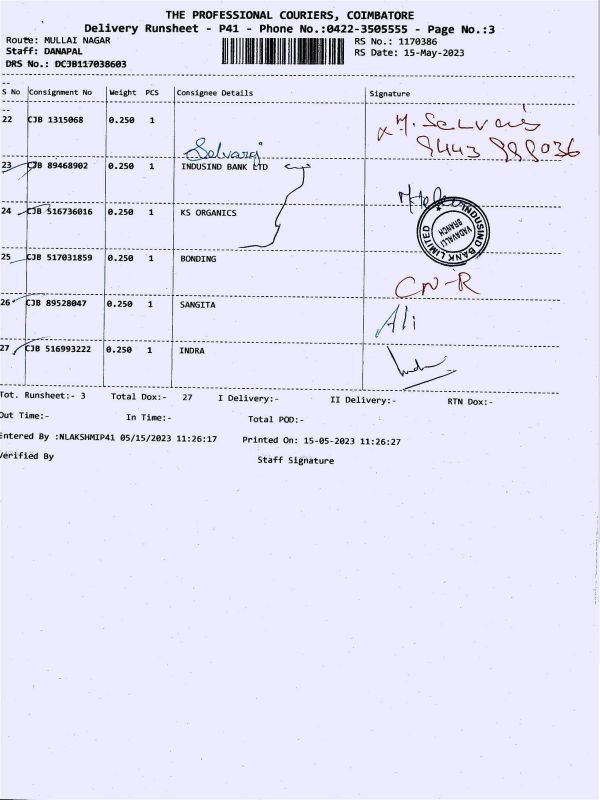 THE PROFESSIONAL COURIERS, COIMBATORE
Delivery Runsheet - P41 - Phone No.:0422-3505555 - Page No.:3
Route: MULLAI NAGAR RS No.: 1170386
Staff: DANAPAL RS Date: 15-May-2023
DRS No.: DCJB117038603
S No Consignment No Weight PCS Consignee Details Signature
22 CJB 1315068 0.250 1
Selvaraj
23 CJB 89468902 0.250 1 INDUSIND BANK LTD
24 CJB 516736016 0.250 1 KS ORGANICS
INDUSIND BANK LIMITED
VADAVALLI
BRANCH
25 CJB 517031859 0.250 1 BONDING
CN-R
26 CJB 89528047 0.250 1 SANGITA Ali
27 CJB 516993222 0.250 1 INDRA
Tot. Runsheet:- 3 Total Dox:- 27 I Delivery:- II Delivery:- RTN Dox:-
Out Time:- In Time:- Total POD:-
Entered By :NLAKSHMIP41 05/15/2023 11:26:17 Printed On: 15-05-2023 11:26:27
Verified By Staff Signature